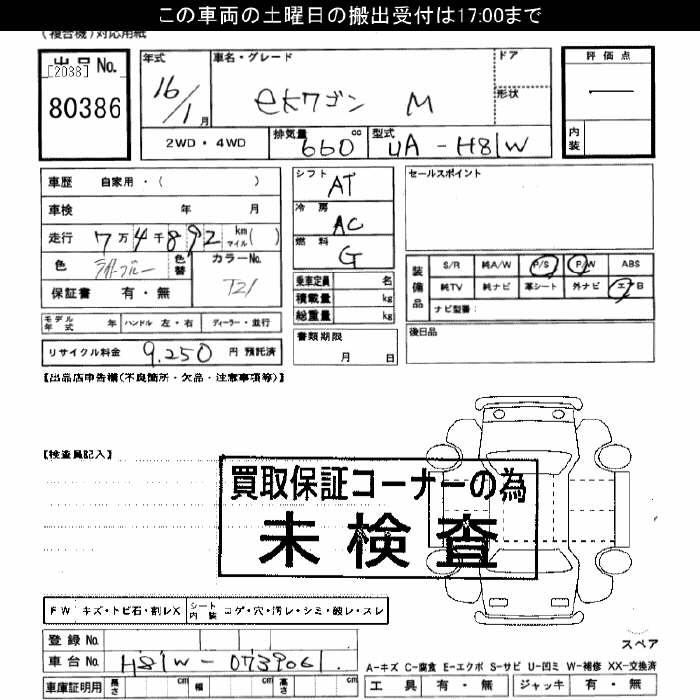 この車両の土曜日の搬出受付は17:00まで
(複合機)対応用紙
出品No.
[2038]
80386
年式
16/1月
車名・グレード
ekワゴン M
ドア
形状
評価点
—
内装
2WD・4WD
排気量 660 cc
型式 UA-H81W
車歴 自家用・( )
車検 年 月
走行 7万4千892 km マイル( )
色 ライトブルー 色替
カラーNo. T21
保証書 有・無
シフト AT
冷房 AC
燃料 G
乗車定員 名
積載量 kg
総重量 kg
セールスポイント
装備品
S/R 純A/W P/S P/W ABS
純TV 純ナビ 革シート 外ナビ エアB
ナビ型番:
モデル年式 年 ハンドル 左・右 ディーラー・並行
リサイクル料金 9,250 円 預託済
書類期限
月 日
後日品
【出品店申告欄(不良箇所・欠品・注意事項等)】
【検査員記入】
買取保証コーナーの為
未検査
FW キズ・トビ石・割レX シート内装 コゲ・穴・汚レ・シミ・破レ・スレ
登録No.
車台No. H81W-0739061
スペア
A-キズ C-腐食 E-エクボ S-サビ U-凹ミ W-補修 XX-交換済
車庫証明用 長さ cm 幅 cm 高さ cm
工具 有・無 ジャッキ 有・無